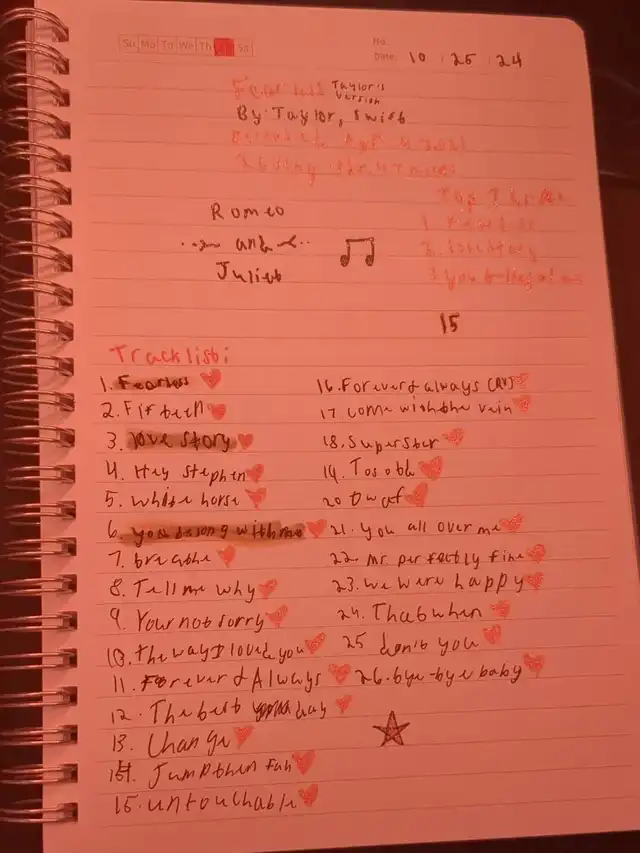 Su Mo Tu We Th Sa
No.
Date: 10 25 24
Fearless Taylor's Version
By: Taylor, Swift
26 song
Romeo
and
Juliet
Top Three
1. Fearless
2. love story
3 you belong with me
15
Tracklist:
1. Fearless
2. Fifteen
3. love story
4. Hey Stephen
5. White horse
6. you belong with me
7. breathe
8. Tell me why
9. Your not sorry
10. the way I loved you
11. Forever & Always
12. The best day
13. Change
14. Jump then fall
15. untouchable
16. Forever & always
17 come with the rain
18. Superstar
19. Tosobb
20 Dwaf
21. you all over me
22. mr perfectly fine
23. we were happy
24. That when
25 don't you
26. bye-bye baby